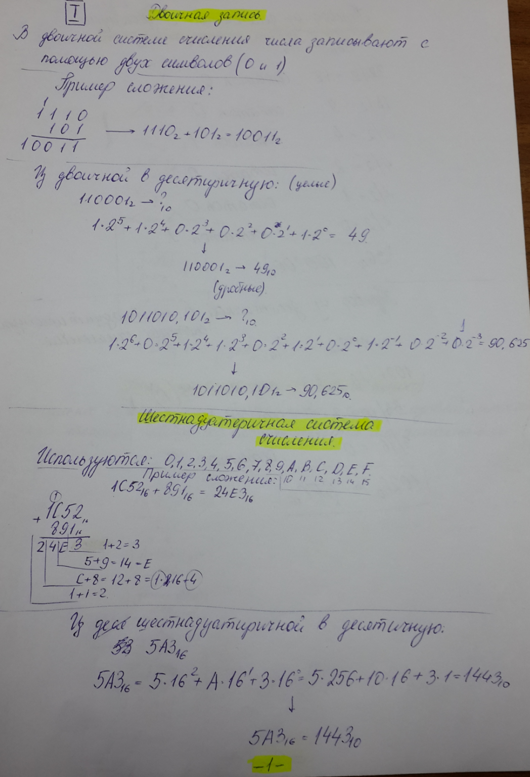 I
Двоичная запись.
В двоичной системе счисления числа записывают с
помощью двух символов (0 и 1)
Пример сложения:
1
1110
101
10011
→ 1110₂ + 101₂ = 10011₂
Из двоичной в десятиричную: (целые)
110001₂ → ?₁₀
1·2⁵ + 1·2⁴ + 0·2³ + 0·2² + 0·2¹ + 1·2⁰ = 49.
↓
110001₂ → 49₁₀
(дробные)
1011010,101₂ → ?₁₀
1
1·2⁶ + 0·2⁵ + 1·2⁴ + 1·2³ + 0·2² + 1·2¹ + 0·2⁰ + 1·2⁻¹ + 0·2⁻² + 0·2⁻³ = 90,625
↓
1011010,101₂ → 90,625₁₀
Шестнадцатеричная система
счисления.
Используются: 0,1,2,3,4,5,6,7,8,9,A,B,C,D,E,F.
10 11 12 13 14 15
Пример сложения:
1C52₁₆ + 891₁₆ = 24E3₁₆
1
1C52
+
891
2 4 E 3 1+2=3
5+9=14=E
C+8=12+8=1·16+4
1+1=2
Из шестнадцатиричной в десятичную.
5A3₁₆
5A3₁₆ = 5·16² + A·16¹ + 3·16⁰ = 5·256 + 10·16 + 3·1 = 1443₁₀
↓
5A3₁₆ = 1443₁₀
-1-